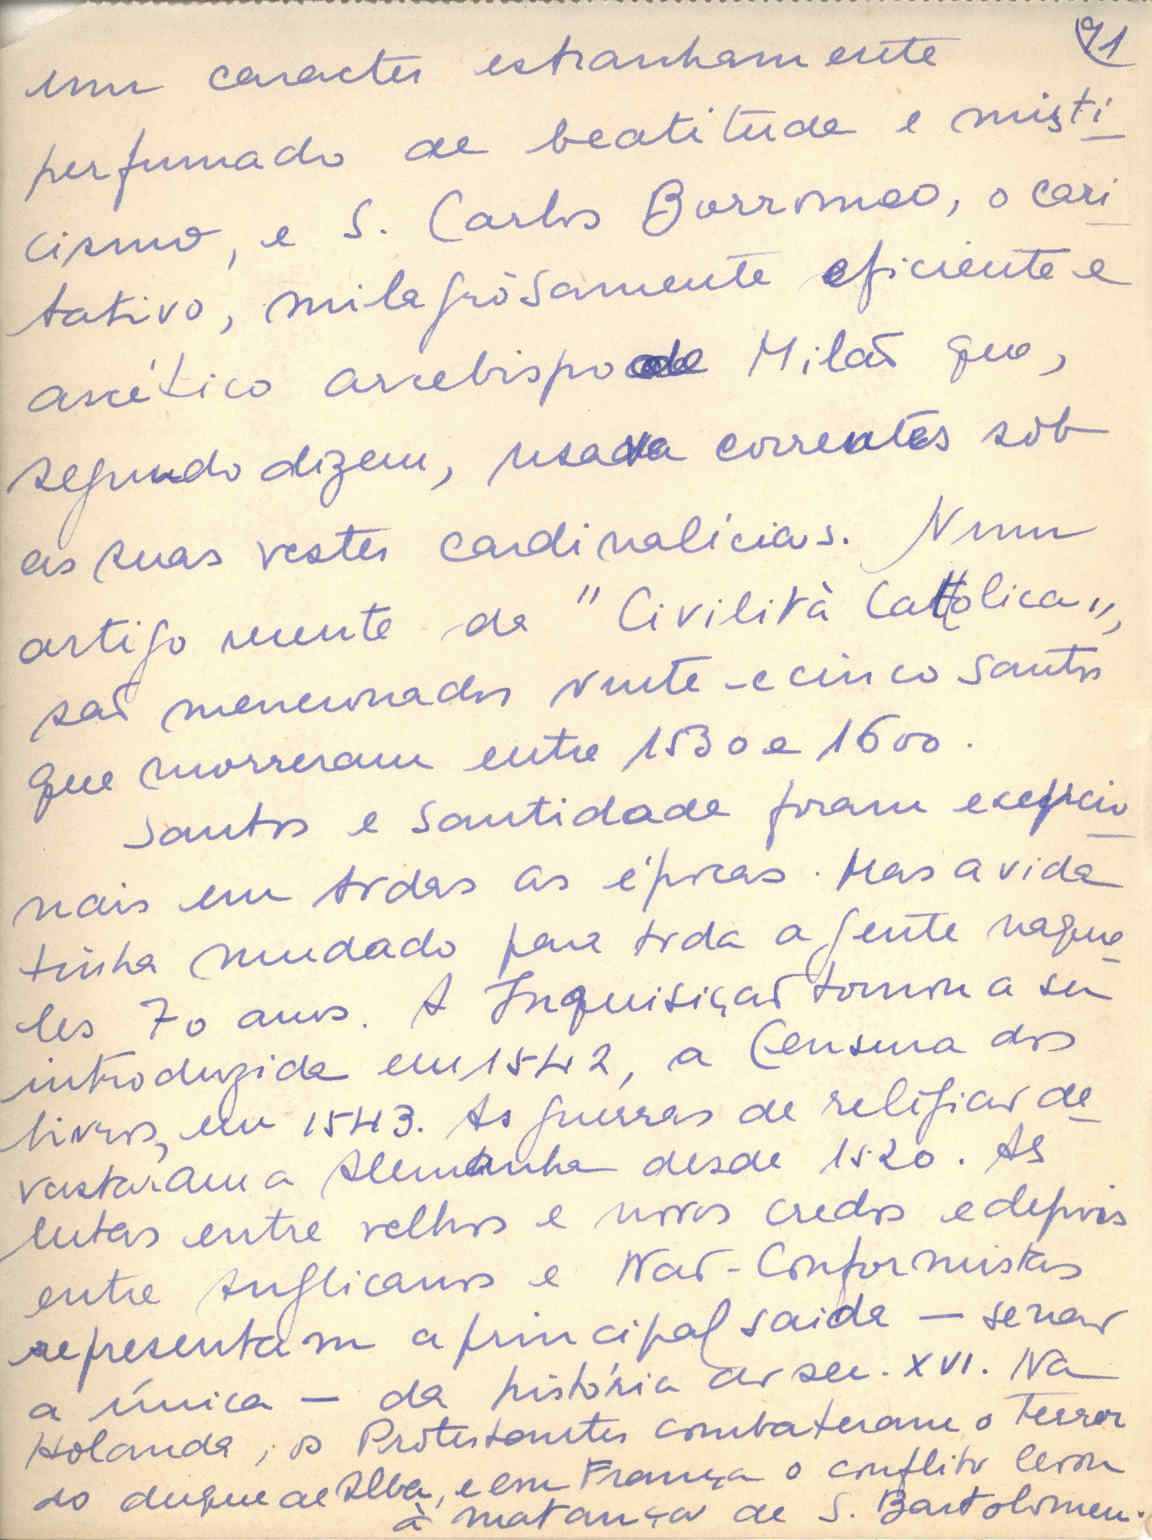 91
um caracter estranhamente
perfumado de beatitude e misti
cismo, e S. Carlos Borromeo, o cari
tativo, milagròsamente eficiente e
ascético arcebispo de Milão que,
segundo dizem, usava correntes sob
as suas vestes cardinalícias. Num
artigo recente da "Civilità Cattolica",
são mencionados vinte-e cinco santos
que morreram entre 1530 e 1600.
Santos e Santidade foram excepcio
nais em todas as épocas. Mas a vida
tinha mudado para toda a gente naque
les 70 anos. A Inquisição tornou a ser
introduzida em 1542, a Censura dos
livros, em 1543. As guerras de religião de
vastaram a Alemanha desde 1520. As
lutas entre velhos e novos credos e depois
entre Anglicanos e Não-Conformistas
representam a principal saida — senão
a única — da história do sec. XVI. Na
Holanda, os Protestantes combateram o Terror
do duque de Alba, e em França o conflito levou
à matança de S. Bartolomeu.